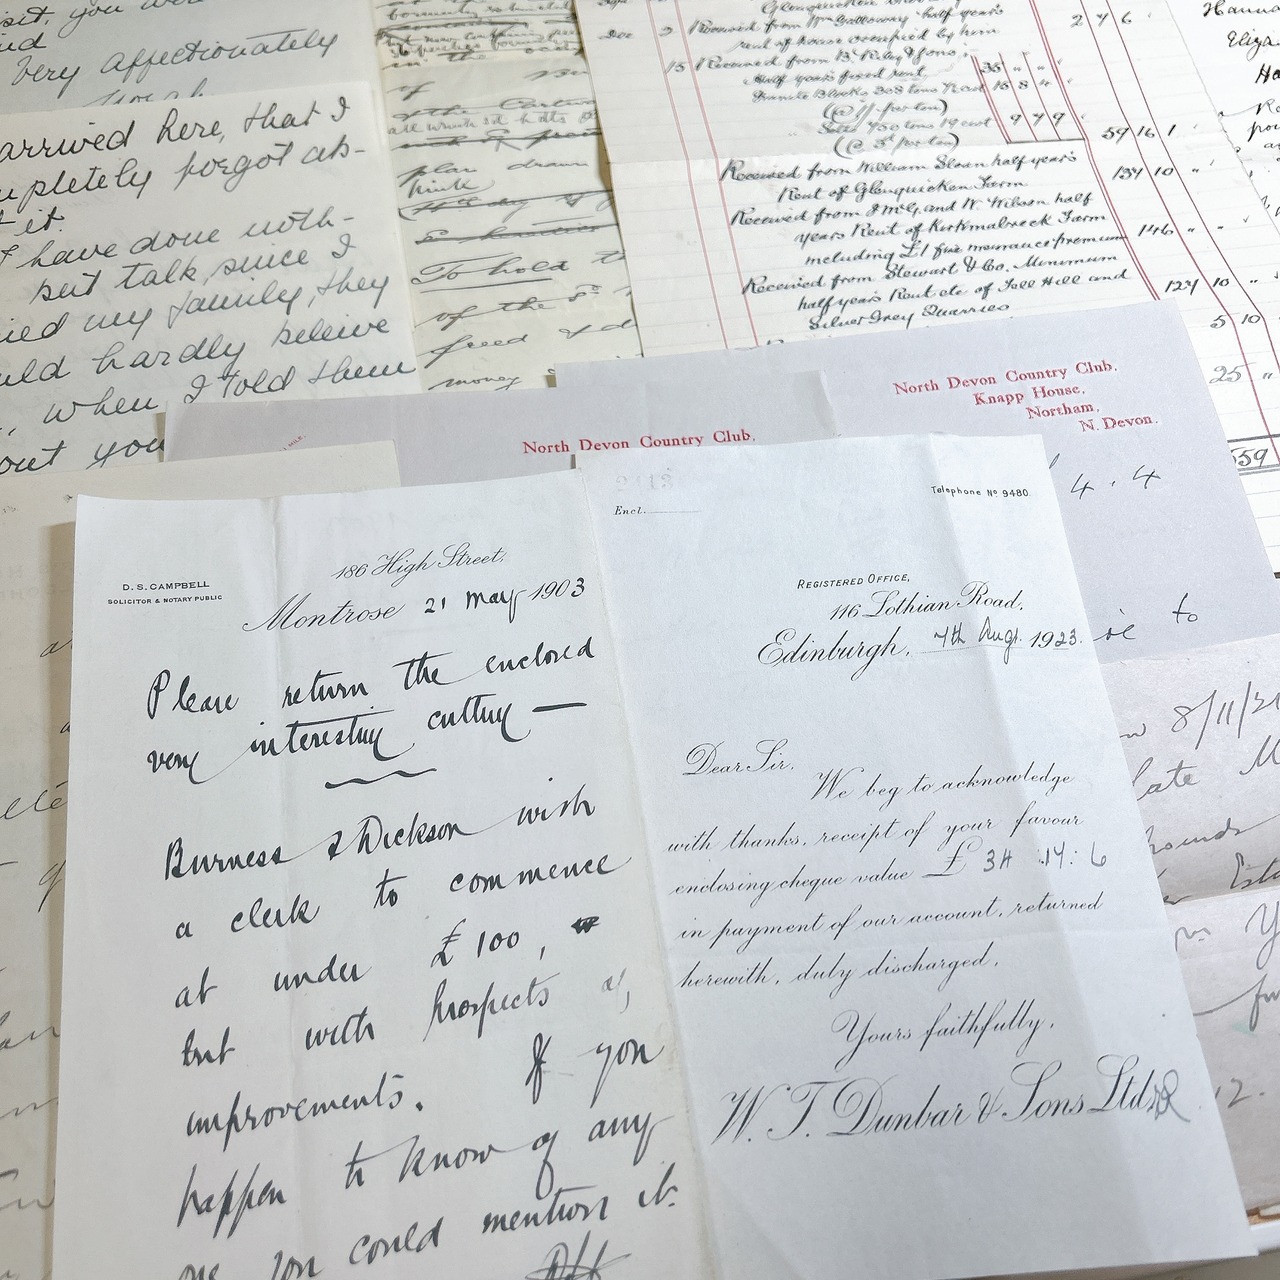 isit, you were
Very affectionately
arrived here, that I
completely forgot ab-
it.
I have done noth-
but talk, since I
my family, they
hardly beleive
, when I told them
out you
of
plan drawn
think
To hold
of the
freed of
money
Received from Wm Galloway half years 2 7 6
rent of house occupied by him
15 Received from B. Riley & Sons
Half year's fixed rent, 35 " "
(@ 1/- per ton)
9 7 9
(@ 3d per ton) 59 16 1
Received from William Sloan half year's 134 10 "
Rent of Glenquicken Farm
Received from J McG. and W. Wilson half
years Rent of Kirkmabreck Farm 146 " "
including £1 fire insurance premium
Received from Stewart & Co. Minimum
half year's Rent etc of Fell Hill and 124 10 "
Silver Grey Quarries
5 10
25 "
59
Hanna
Eliza
North Devon Country Club,
North Devon Country Club,
Knapp House,
Northam,
N. Devon.
4 . 4
to
8/11/21
late
12.
D. S. CAMPBELL
SOLICITOR & NOTARY PUBLIC
186 High Street,
Montrose 21 May 1903
Please return the enclosed
very interesting cutting —
Burness & Dickson wish
a clerk to commence
at under £100,
but with prospects of,
improvements. If you
happen to know of any
one you could mention it.
2413
Encl.
Telephone No 9480.
REGISTERED OFFICE,
116 Lothian Road,
Edinburgh, 7th Augt. 1923.
Dear Sir,
We beg to acknowledge
with thanks, receipt of your favour
enclosing cheque value £ 34 : 14 : 6
in payment of our account, returned
herewith, duly discharged.
Yours faithfully,
W. T. Dunbar & Sons Ltd.